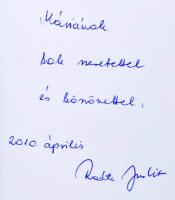 Máriának
sok szeretettel
és köszönettel:
2010 április
Judit